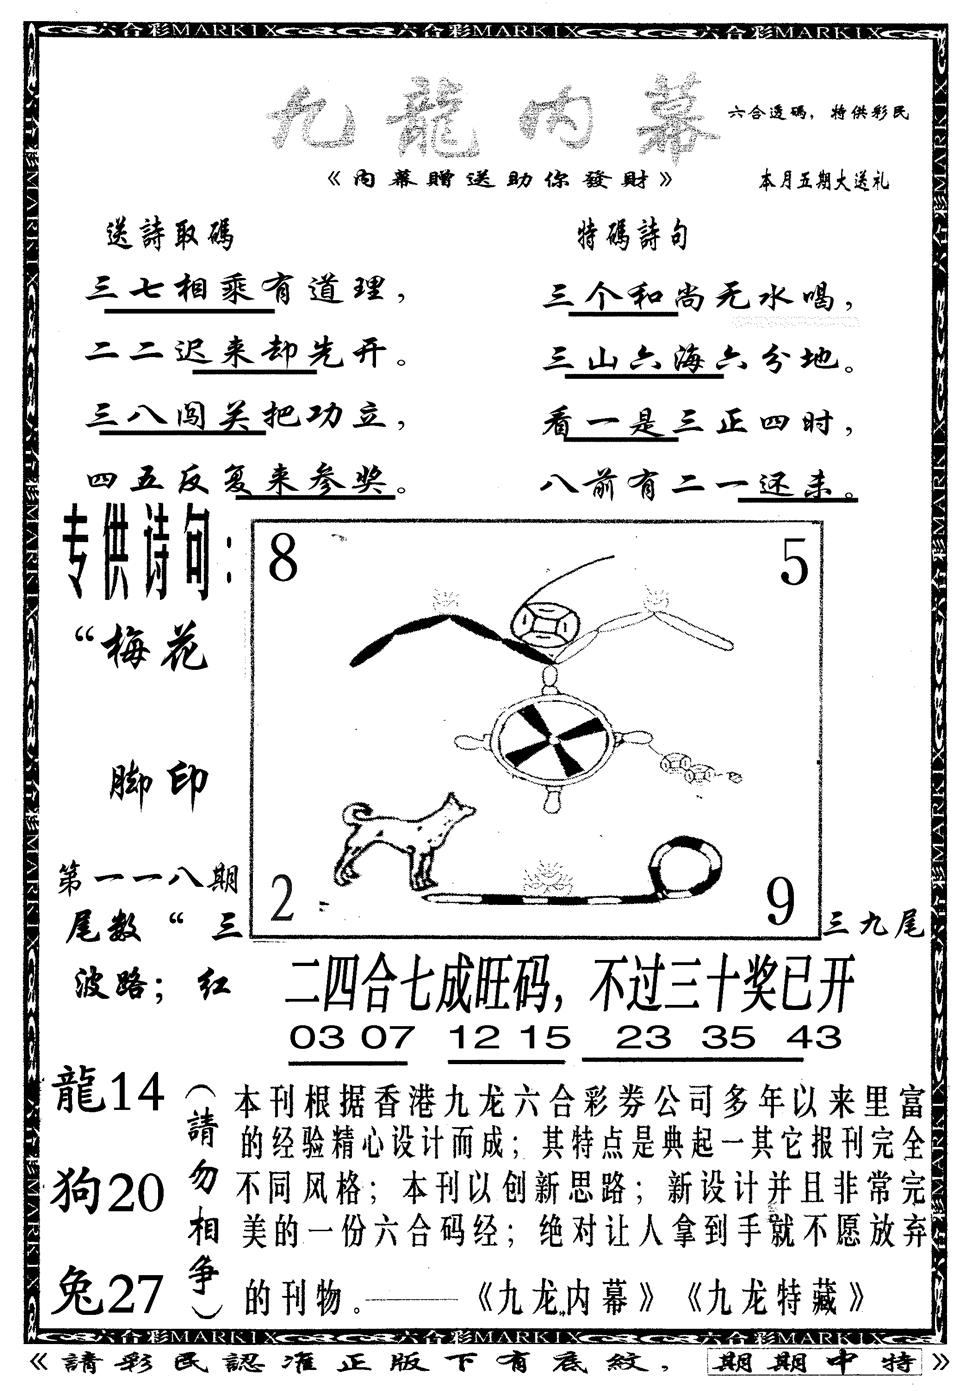 六合彩MARKIX 六合彩MARKIX 六合彩MARKIX
九龍内幕
六合透碼，特供彩民
《内幕贈送助你發財》
本月五期大送礼
送詩取碼
三七相乘有道理，
二二迟来却先开。
三八闯关把功立，
四五反复来参奖。
特碼詩句
三个和尚无水喝，
三山六海六分地。
看一是三正四时，
八前有二一还未。
专供诗句：
“梅花
脚印
第一一八期
尾数“三
波路；红
8
5
2
9
三九尾
二四合七成旺码，不过三十奖已开
03 07 12 15 23 35 43
龍14
狗20
兔27
（請勿相争）
本刊根据香港九龙六合彩券公司多年以来里富
的经验精心设计而成；其特点是典起一其它报刊完全
不同风格；本刊以创新思路；新设计并且非常完
美的一份六合码经；绝对让人拿到手就不愿放弃
的刊物。———《九龙内幕》《九龙特藏》
六合彩MARKIX 六合彩MARKIX 六合彩MARKIX
《請彩民認准正版下有底紋，期期中特》